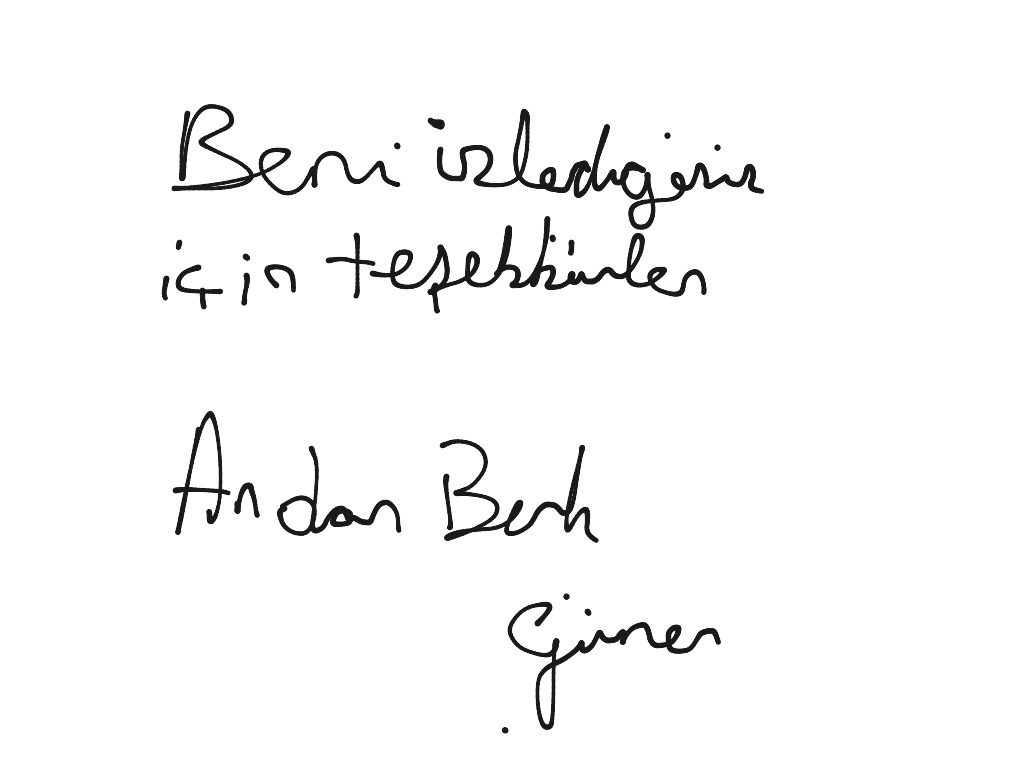 Beni izlediğiniz
için teşekkürler
Andaç Berk
Güner